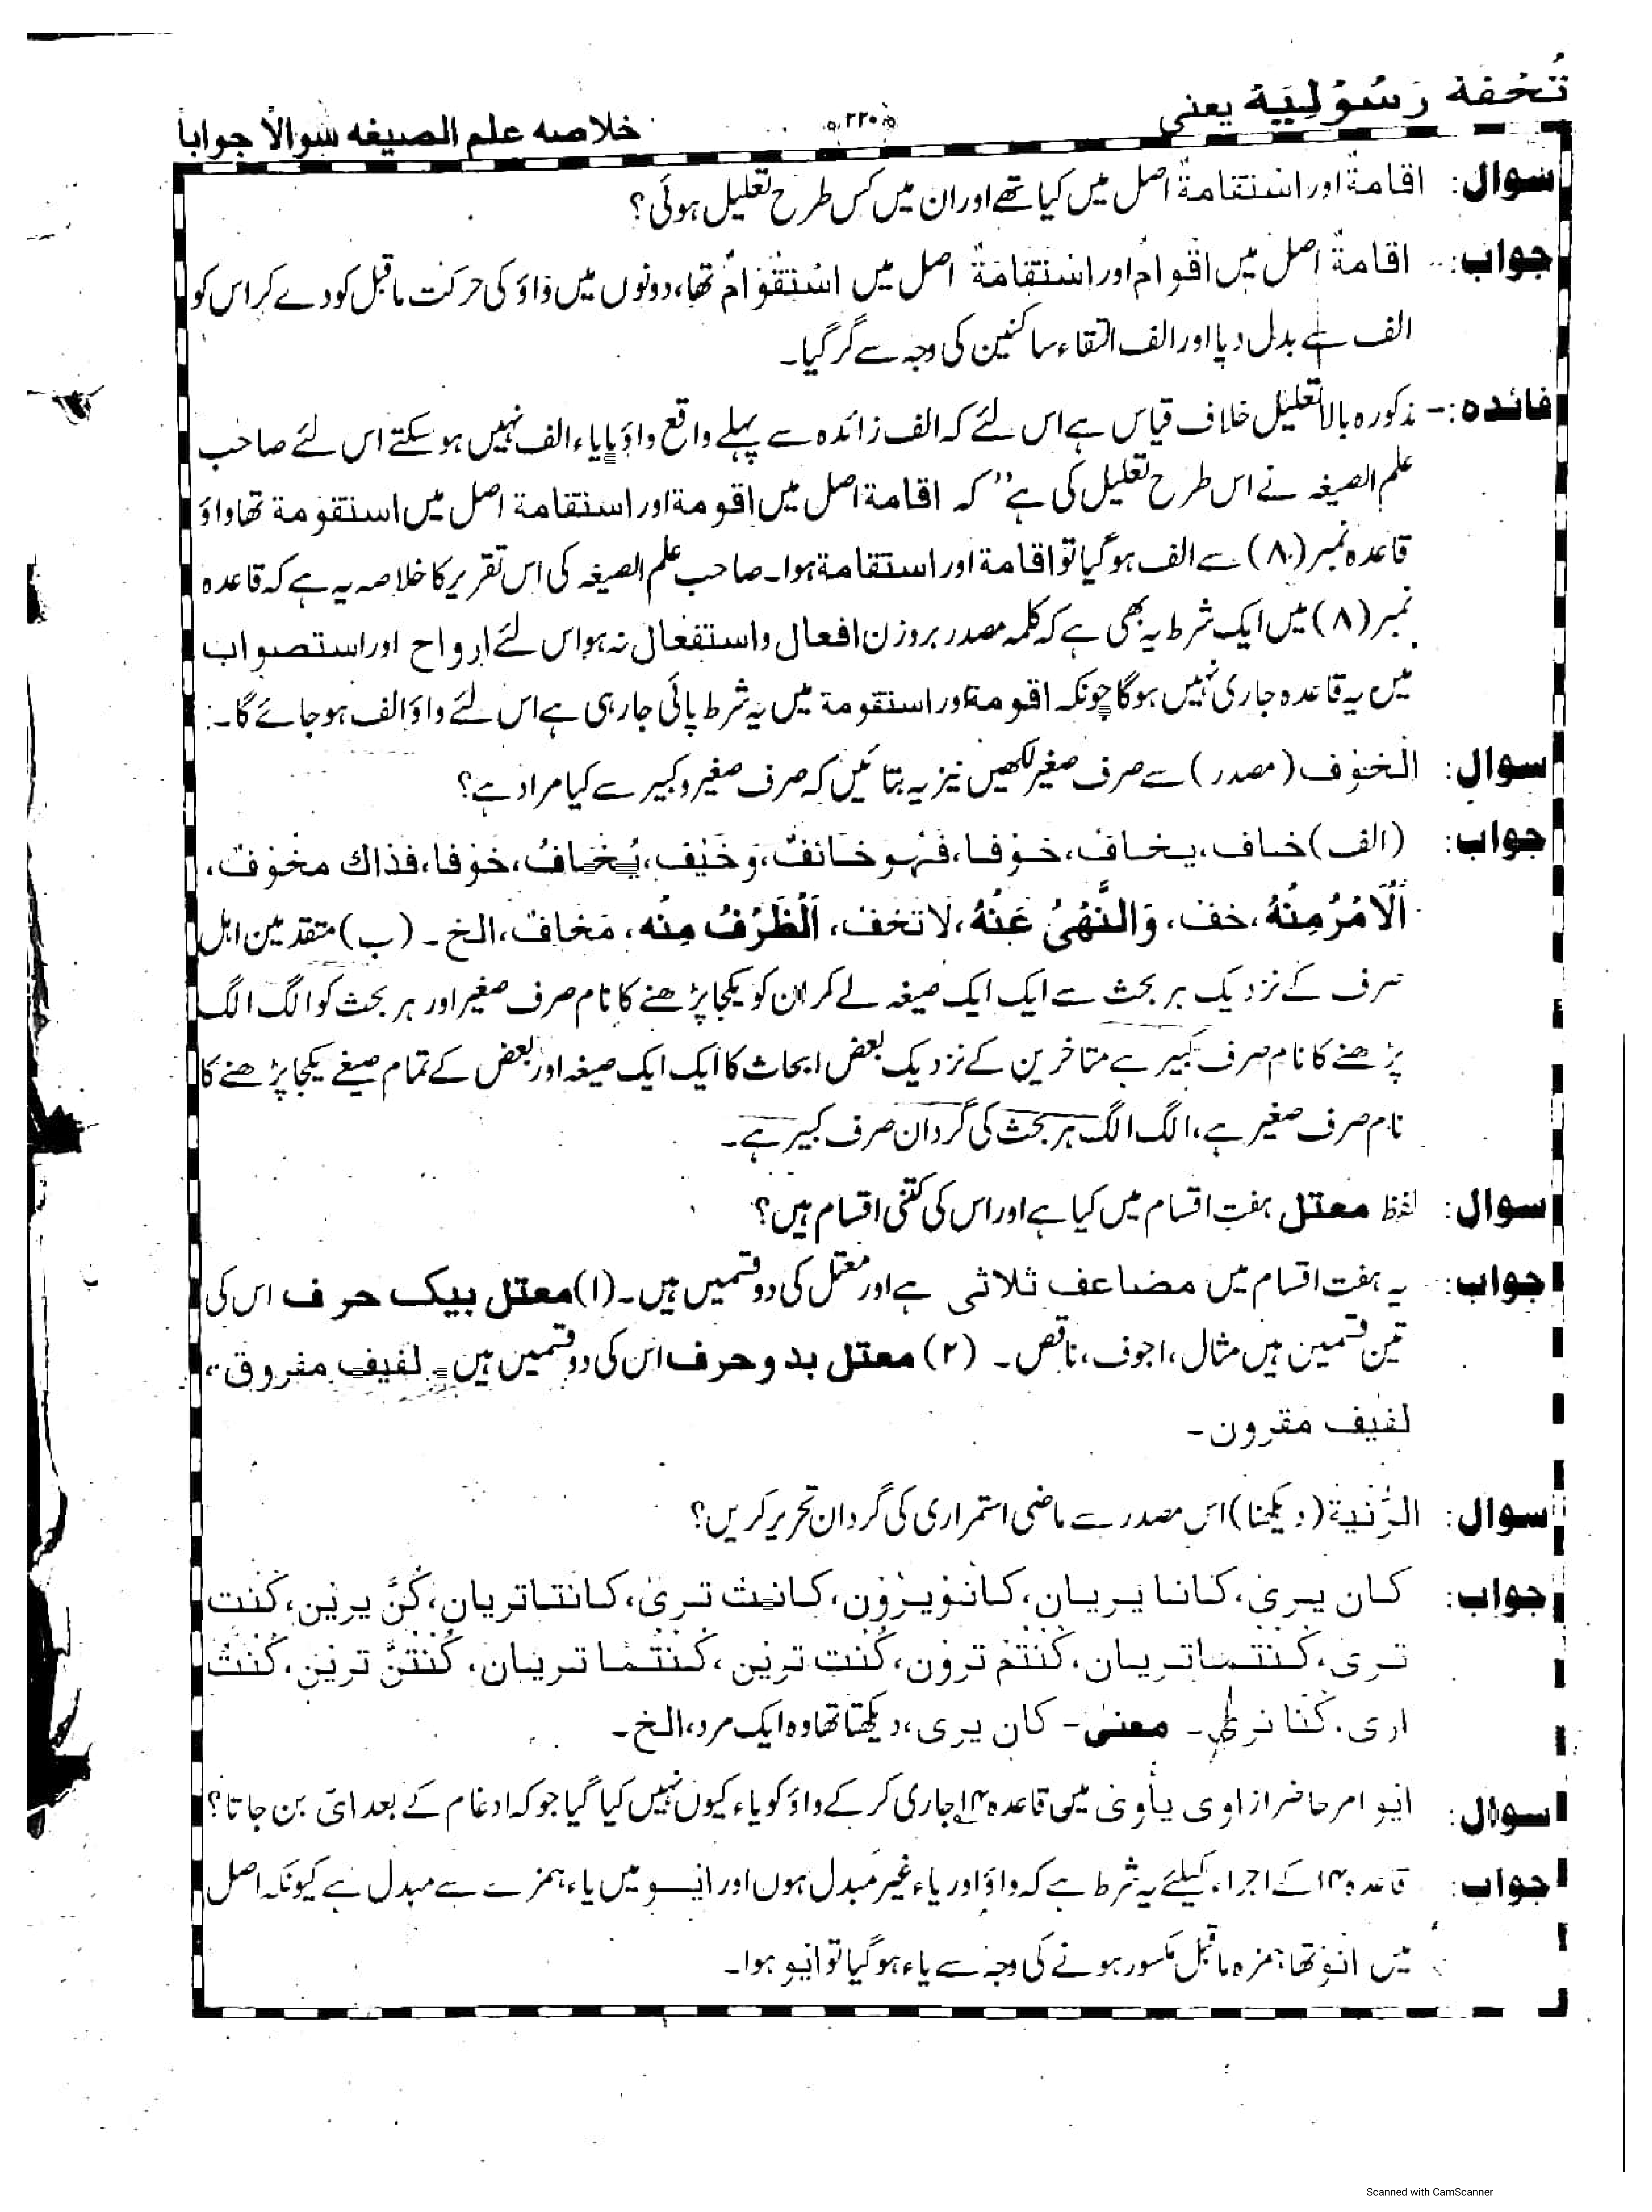 تُحْفَة رَسُوْلِيَة یعنی
﴿۲۲۰﴾
خلاصه علم الصیغه سوالاً جواباً
سوال: اقامةٌ اور استقامةٌ اصل میں کیا تھے اور ان میں کس طرح تعلیل ہوئی؟
جواب:- اقامةٌ اصل میں اقوامٌ اور استقامةٌ اصل میں استقوامٌ تھا، دونوں میں واؤ کی حرکت ماقبل کو دے کر اس کو
الف سے بدل دیا اور الف التقاء ساکنین کی وجہ سے گر گیا۔
فائدہ:- مذکورہ بالا تعلیل خلاف قیاس ہے اس لئے کہ الف زائدہ سے پہلے واقع واؤ یا یاء الف نہیں ہو سکتے اس لئے صاحب
علم الصیغہ نے اس طرح تعلیل کی ہے ”کہ اقامة اصل میں اقومة اور استقامة اصل میں استقومة تھا واؤ
قاعدہ نمبر (۸) سے الف ہو گیا تو اقامة اور استقامة ہوا۔ صاحب علم الصیغہ کی اس تقریر کا خلاصہ یہ ہے کہ قاعدہ
نمبر (۸) میں ایک شرط یہ بھی ہے کہ کلمہ مصدر بروزن افعال و استفعال نہ ہو اس لئے ارواح اور استصواب
میں یہ قاعدہ جاری نہیں ہوگا چونکہ اقومة اور استقومة میں یہ شرط پائی جا رہی ہے اس لئے واؤ الف ہو جائے گا۔
سوال: الخوف (مصدر) سے صرف صغیر لکھیں نیز یہ بتائیں کہ صرف صغیر و کبیر سے کیا مراد ہے؟
جواب: (الف) خاف، یخاف، خوفا، فہو خائف، وَخِیْفَ، یُخَافُ، خَوْفا، فذاك مخوف،
اَلْاَمْرُ مِنْهُ، خف، وَالنَّهْیُ عَنْهُ، لا تخف، اَلظَّرْفُ مِنْه، مَخاف، الخ۔ (ب) متقدمین اہل
صرف کے نزدیک ہر بحث سے ایک ایک صیغہ لے کر ان کو یکجا پڑھنے کا نام صرف صغیر اور ہر بحث کو الگ الگ
پڑھنے کا نام صرف کبیر ہے متاخرین کے نزدیک بعض ابحاث کا ایک ایک صیغہ اور بعض کے تمام صیغے یکجا پڑھنے کا
نام صرف صغیر ہے، الگ الگ ہر بحث کی گردان صرف کبیر ہے۔
سوال: لفظ معتل ہفت اقسام میں کیا ہے اور اس کی کتنی اقسام ہیں؟
جواب: یہ ہفت اقسام میں مضاعف ثلاثی ہے اور معتل کی دو قسمیں ہیں۔ (۱) معتل بیک حرف اس کی
تین قسمیں ہیں مثال، اجوف، ناقص۔ (۲) معتل بدو حرف اس کی دو قسمیں ہیں۔ لفیف مفروق،
لفیف مقرون۔
سوال: الرُّئْیة (دیکھنا) اس مصدر سے ماضی استمراری کی گردان تحریر کریں؟
جواب: کان یری، کانا یریان، کانوْیرَوْن، کانت تریٰ، کانتا تریان، کُنَّ یریْن، کُنت
تری، کُنتما تریان، کُنتم ترون، کُنت ترین، کُنتما تریان، کُنتنَّ ترین، کُنتُ
اری، کُنّا نری۔ معنیٰ- کان یری، دیکھتا تھا وہ ایک مرد، الخ۔
سوال: ایو امر حاضر از اوی یأوی میں قاعدہ ۱۴ جاری کر کے واؤ کو یاء کیوں نہیں کیا گیا جو کہ ادغام کے بعد ایّ بن جاتا؟
جواب: قاعدہ ۱۴ کے اجراء کیلئے یہ شرط ہے کہ واؤ اور یاء غیر مبدل ہوں اور ایو میں یاء ہمزے سے مبدل ہے کیونکہ اصل
میں ائو تھا ہمزہ ماقبل مکسور ہونے کی وجہ سے یاء ہو گیا تو ایو ہوا۔
Scanned with CamScanner